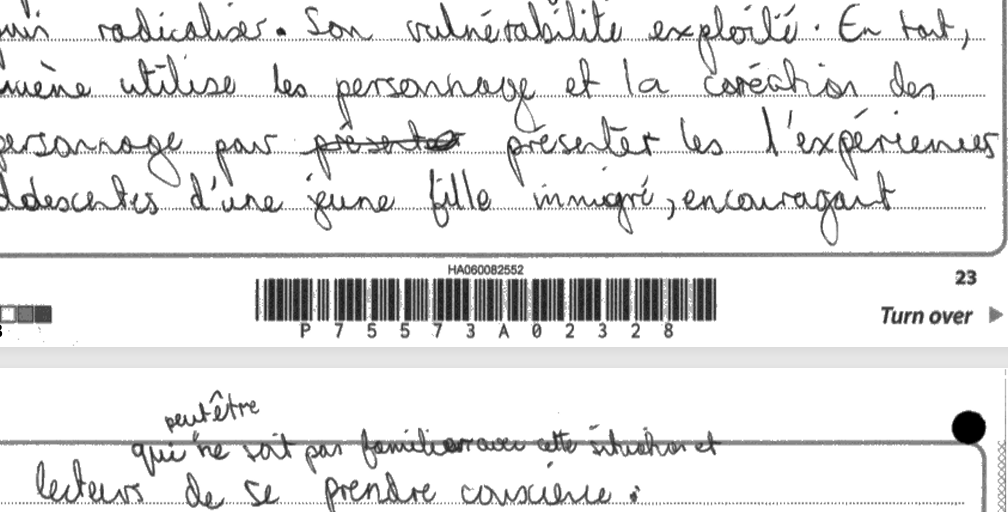 puis radicaliser. Son vulnérabilité exploité. En tout,
mène utilise les personnage et la coréction des
personnage pour présenter les l'expériences
adolescentes d'une jeune fille immigré, encouragant
HA060082552
23
P75573A02328
Turn over
peut être
qui ne soit pas familier avec cette situation et
lecteurs de se prendre conscience.